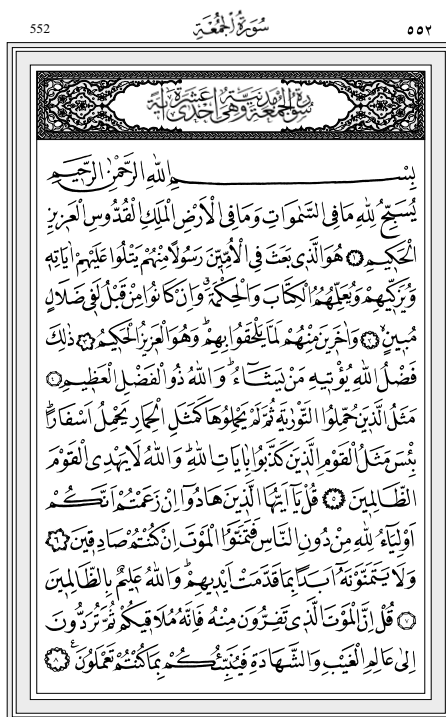 552 سُورَةُ الْجُمُعَةِ ٥٥٢
سُورَةُ الْجُمُعَةِ مَدَنِيَّةٌ وَهِيَ اِحْدٰى عَشْرَةَ اٰيَةً
بِسْمِ اللّٰهِ الرَّحْمٰنِ الرَّحٖيمِ
يُسَبِّحُ لِلّٰهِ مَا فِى السَّمٰوَاتِ وَمَا فِى الْاَرْضِ الْمَلِكِ الْقُدُّوسِ الْعَزٖيزِ
الْحَكٖيمِ ﴿١﴾ هُوَ الَّذٖى بَعَثَ فِى الْاُمِّيّٖنَ رَسُولًا مِنْهُمْ يَتْلُوا عَلَيْهِمْ اٰيَاتِهٖ
وَيُزَكّٖيهِمْ وَيُعَلِّمُهُمُ الْكِتَابَ وَالْحِكْمَةَۗ وَاِنْ كَانُوا مِنْ قَبْلُ لَفٖى ضَلَالٍ
مُبٖينٍۙ ﴿٢﴾ وَاٰخَرٖينَ مِنْهُمْ لَمَّا يَلْحَقُوا بِهِمْۜ وَهُوَ الْعَزٖيزُ الْحَكٖيمُ ﴿٣﴾ ذٰلِكَ
فَضْلُ اللّٰهِ يُؤْتٖيهِ مَنْ يَشَٓاءُۜ وَاللّٰهُ ذُو الْفَضْلِ الْعَظٖيمِ ﴿٤﴾
مَثَلُ الَّذٖينَ حُمِّلُوا التَّوْرٰيةَ ثُمَّ لَمْ يَحْمِلُوهَا كَمَثَلِ الْحِمَارِ يَحْمِلُ اَسْفَارًاۜ
بِئْسَ مَثَلُ الْقَوْمِ الَّذٖينَ كَذَّبُوا بِاٰيَاتِ اللّٰهِۜ وَاللّٰهُ لَا يَهْدِى الْقَوْمَ
الظَّالِمٖينَ ﴿٥﴾ قُلْ يَٓا اَيُّهَا الَّذٖينَ هَادُٓوا اِنْ زَعَمْتُمْ اَنَّكُمْ
اَوْلِيَٓاءُ لِلّٰهِ مِنْ دُونِ النَّاسِ فَتَمَنَّوُا الْمَوْتَ اِنْ كُنْتُمْ صَادِقٖينَ ﴿٦﴾
وَلَا يَتَمَنَّوْنَهُٓ اَبَدًا بِمَا قَدَّمَتْ اَيْدٖيهِمْۜ وَاللّٰهُ عَلٖيمٌ بِالظَّالِمٖينَ
﴿٧﴾ قُلْ اِنَّ الْمَوْتَ الَّذٖى تَفِرُّونَ مِنْهُ فَاِنَّهُ مُلَاقٖيكُمْ ثُمَّ تُرَدُّونَ
اِلٰى عَالِمِ الْغَيْبِ وَالشَّهَادَةِ فَيُنَبِّئُكُمْ بِمَا كُنْتُمْ تَعْمَلُونَ ﴿٨﴾